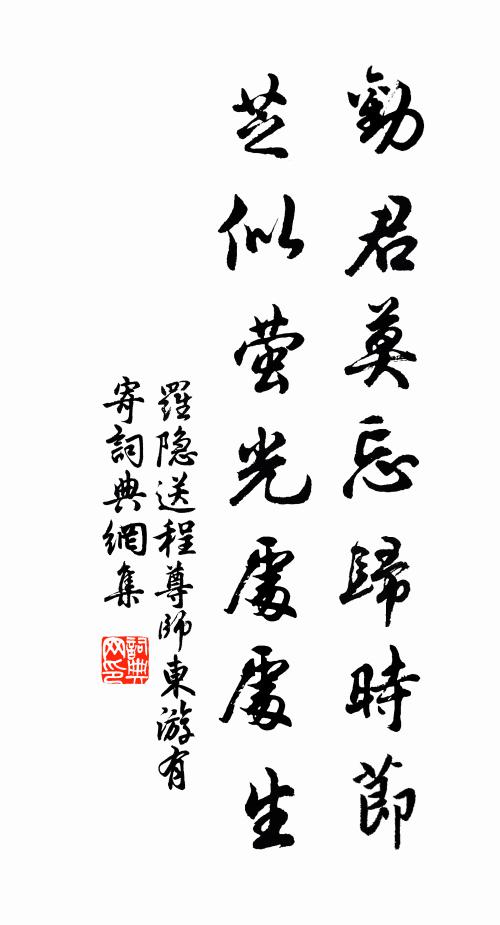 勸君莫忘歸時節
芝似螢光處處生
羅隐送程尊師東游有
寄詞典網集
詞典
网印